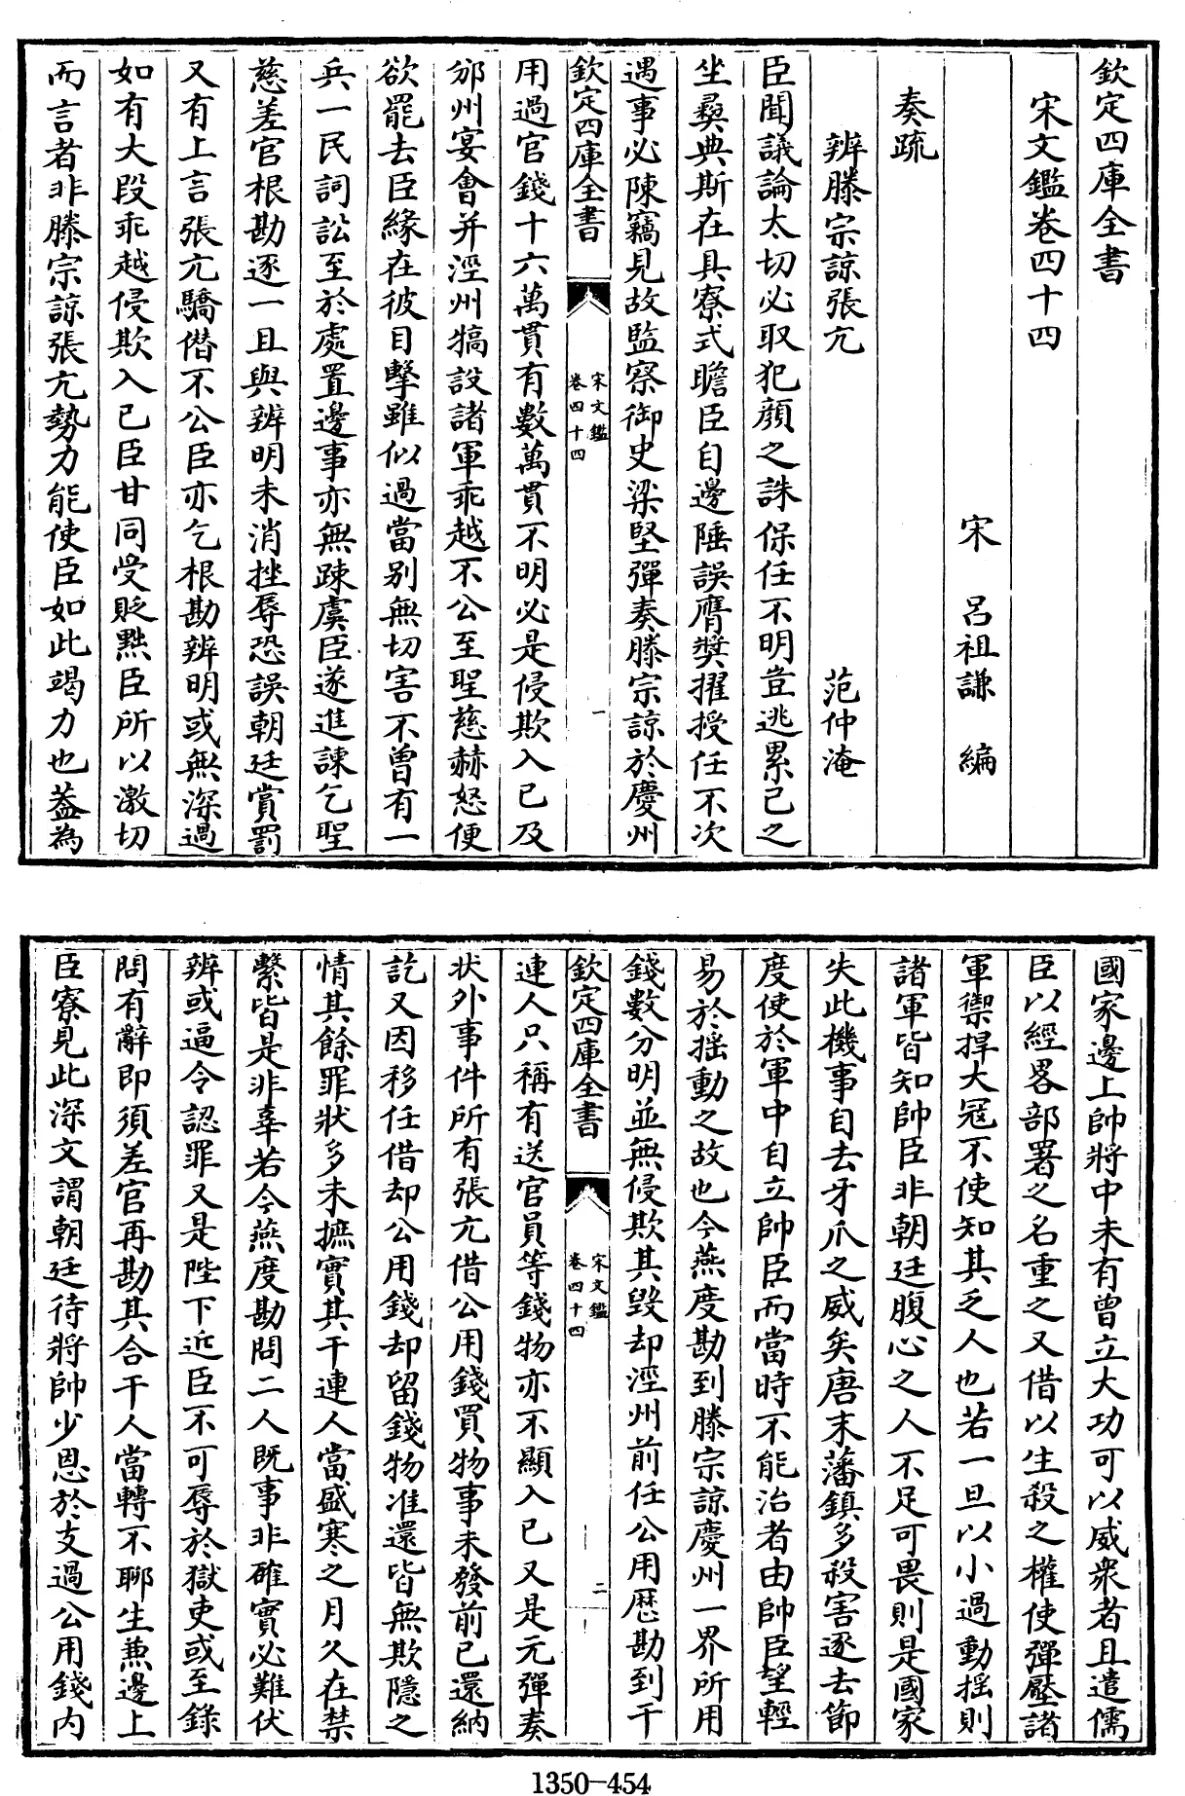 欽定四庫全書
宋文鑑卷四十四
宋 呂祖謙 編
奏疏
辨滕宗諒張亢 范仲淹
臣聞議論太切必取犯顔之誅保任不明豈逃累己之
坐彞典斯在具寮式瞻臣自邊陲誤膺奬擢授任不次
遇事必陳竊見故監察御史梁堅彈奏滕宗諒於慶州
欽定四庫全書
宋文鑑
卷四十四
一
用過官錢十六萬貫有數萬貫不明必是侵欺入己及
邠州宴會并涇州犒設諸軍乖越不公至聖慈赫怒便
欲罷去臣緣在彼目擊雖似過當别無切害不曾有一
兵一民詞訟至於處置邊事亦無踈虞臣遂進諫乞聖
慈差官根勘逐一且與辨明未消挫辱恐誤朝廷賞罰
又有上言張亢驕僣不公臣亦乞根勘辨明或無深過
如有大段乖越侵欺入己臣甘同受貶黜臣所以激切
而言者非滕宗諒張亢勢力能使臣如此竭力也葢為
國家邊上帥將中未有曾立大功可以威衆者且遣儒
臣以經畧部署之名重之又借以生殺之權使彈壓諸
軍禦捍大冦不使知其乏人也若一旦以小過動揺則
諸軍皆知帥臣非朝廷腹心之人不足可畏則是國家
失此機事自去牙爪之威矣唐末藩鎮多殺害逐去節
度使於軍中自立帥臣而當時不能治者由帥臣望輕
易於揺動之故也今燕度勘到滕宗諒慶州一界所用
錢數分明並無侵欺其毁却涇州前任公用厯勘到干
欽定四庫全書
宋文鑑
卷四十四
二
連人只稱有送官員等錢物亦不顯入己又是元彈奏
狀外事件所有張亢借公用錢買物事未發前已還納
訖又因移任借却公用錢却留錢物准還皆無欺隠之
情其餘罪狀多未摭實其干連人當盛寒之月久在禁
繫皆是非辜若令燕度勘問二人既事非確實必難伏
辨或逼令認罪又是陛下近臣不可辱於獄吏或至錄
問有辭即須差官再勘其合干人當轉不聊生兼邊上
臣寮見此深文謂朝廷待將帥少恩於支過公用錢内
1350-454